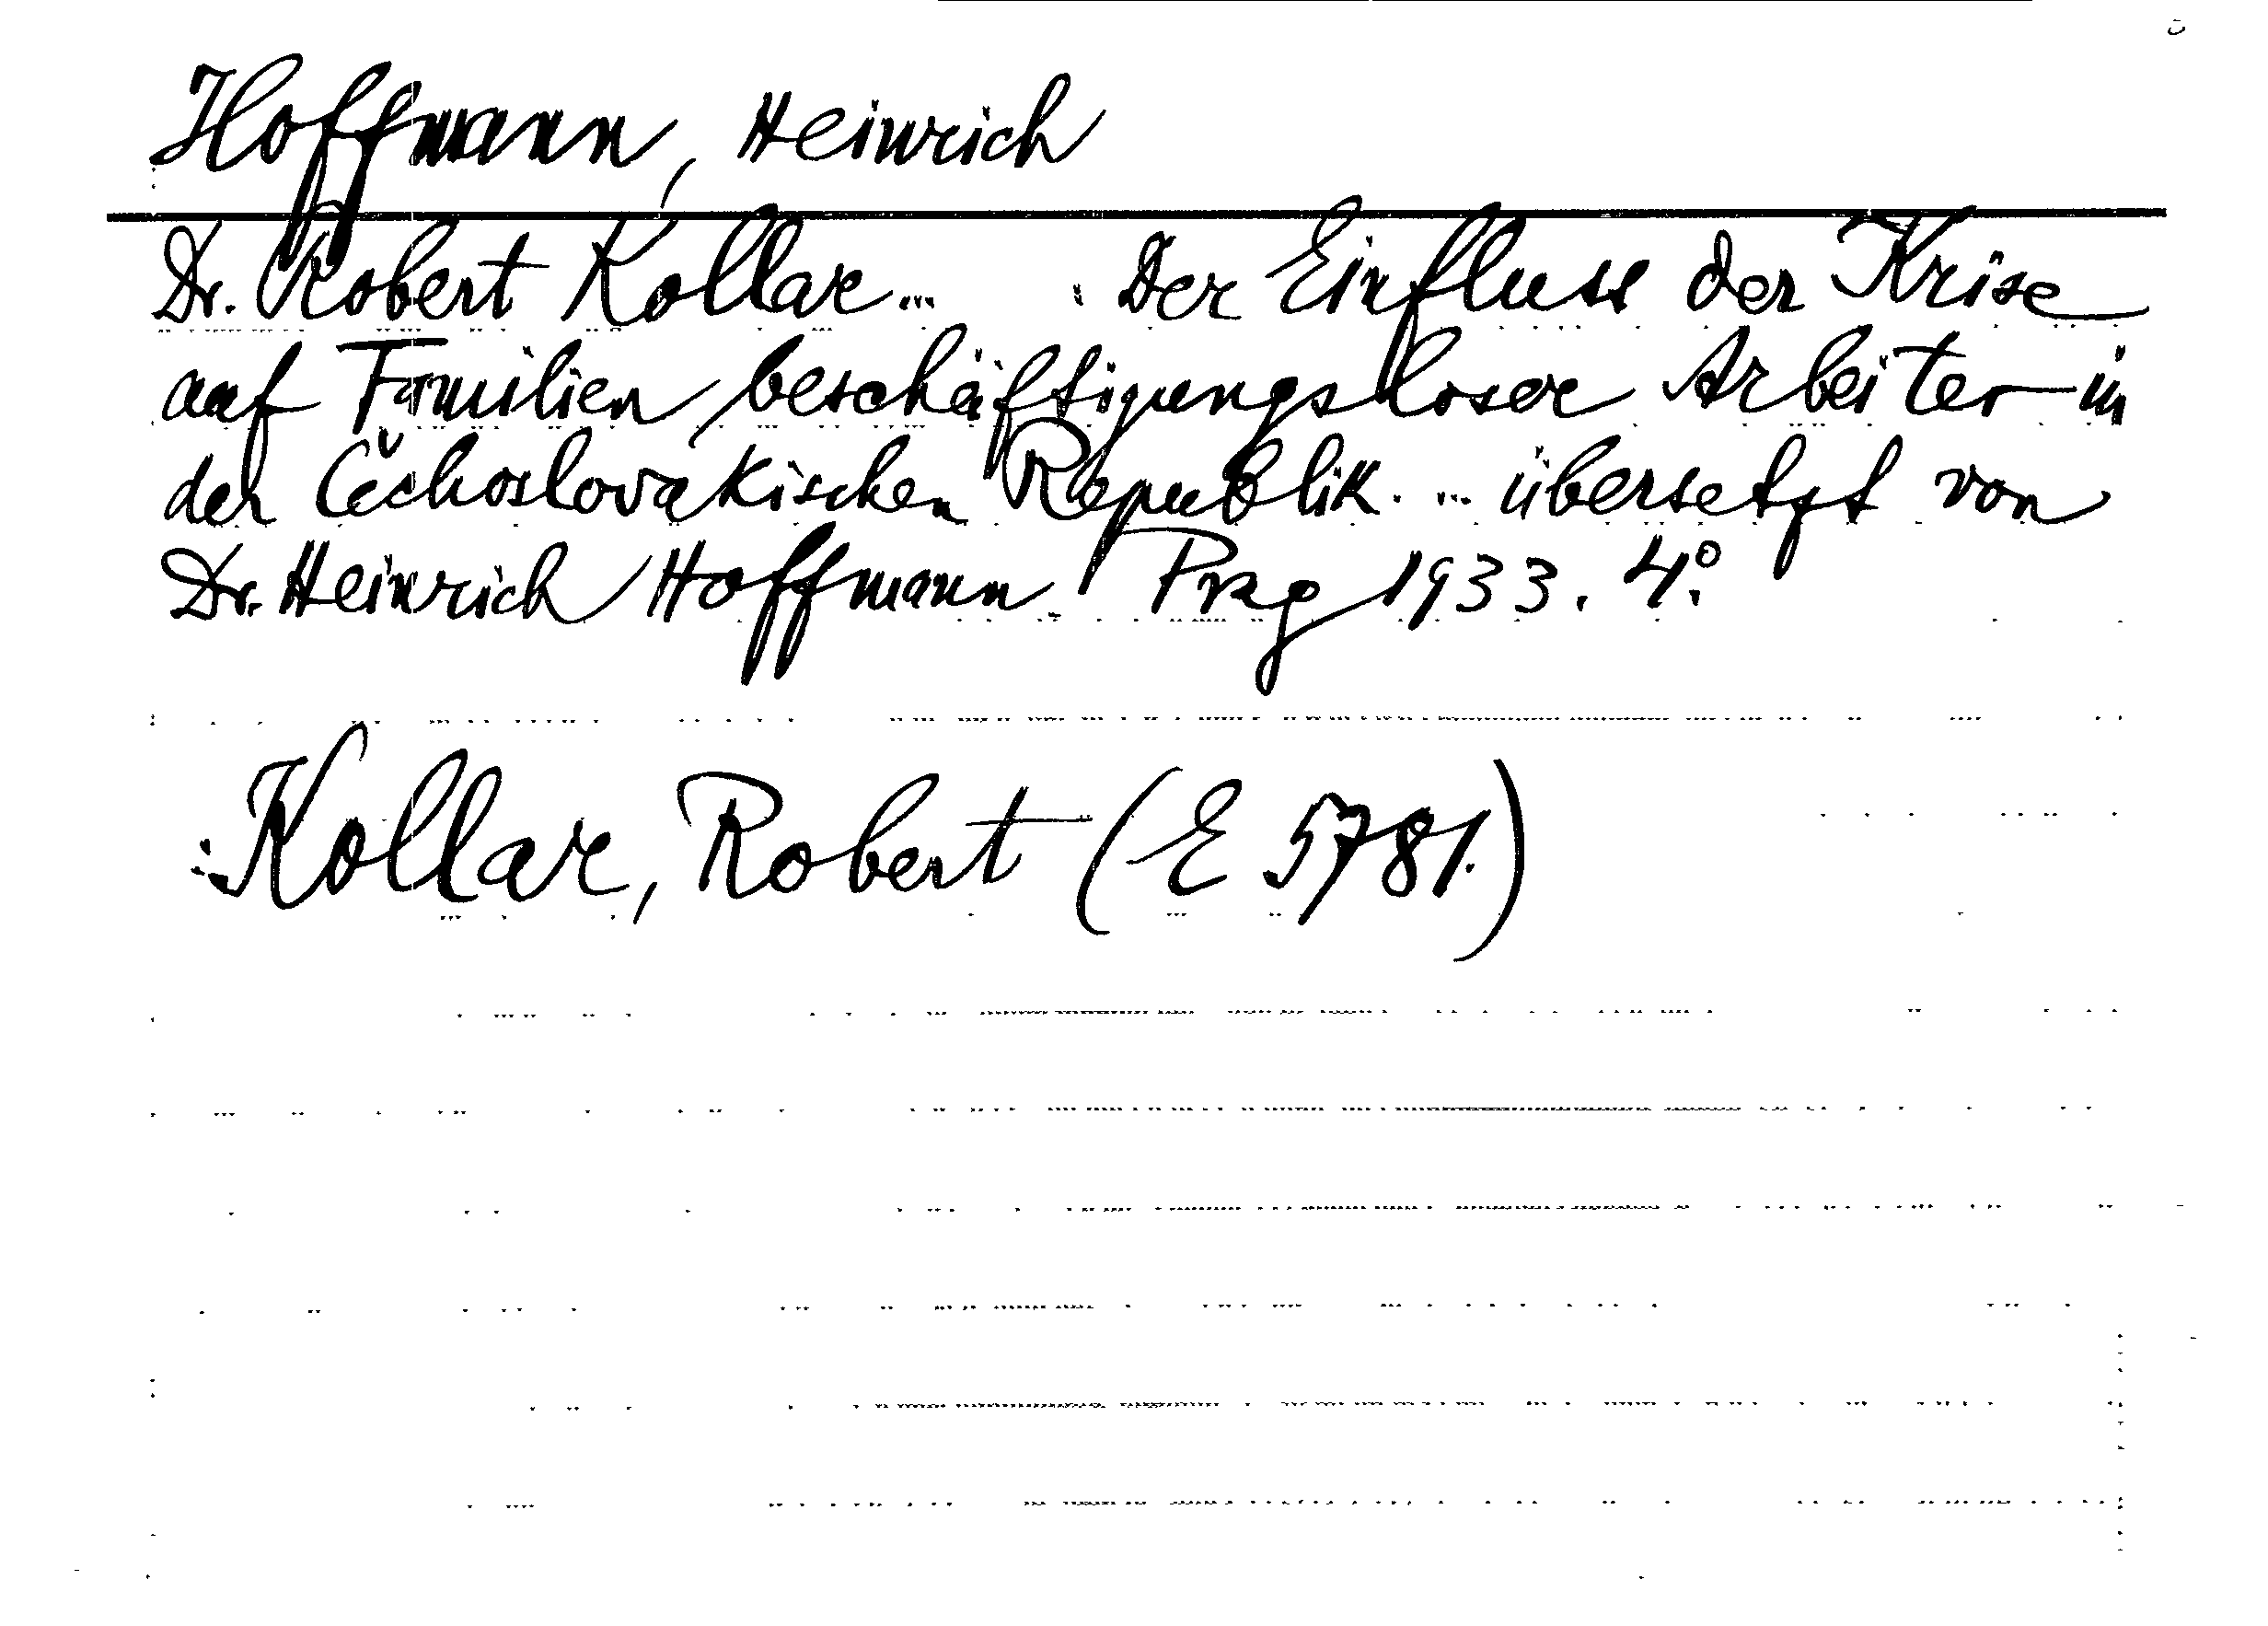 Hoffmann, Heinrich
Dr. Robert Kollar ... . Der Einfluss der Krise
auf Familien beschäftigungsloser Arbeiter in
der Čechoslovakischen Republik. ... übersetzt von
Dr. Heinrich Hoffmann. Prag 1933. 4°.
: Kollar, Robert (E 5781.)